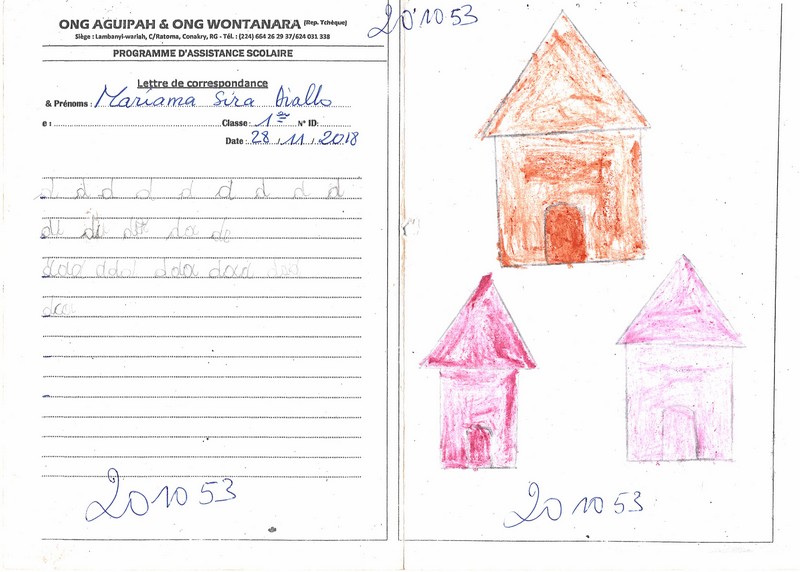 ONG AGUIPAH & ONG WONTANARA (Rep. Tchèque)
Siège : Lambanyi-wariah, C/Ratoma, Conakry, RG - Tél. : (224) 664 26 29 37/624 031 338
PROGRAMME D'ASSISTANCE SCOLAIRE
Lettre de correspondance
& Prénoms : Mariama Sira Diallo
e : Classe : 1ère N° ID:
Date : 28 / 11 / 2018
d d d d d d d d d
di di
201053
201053
201053